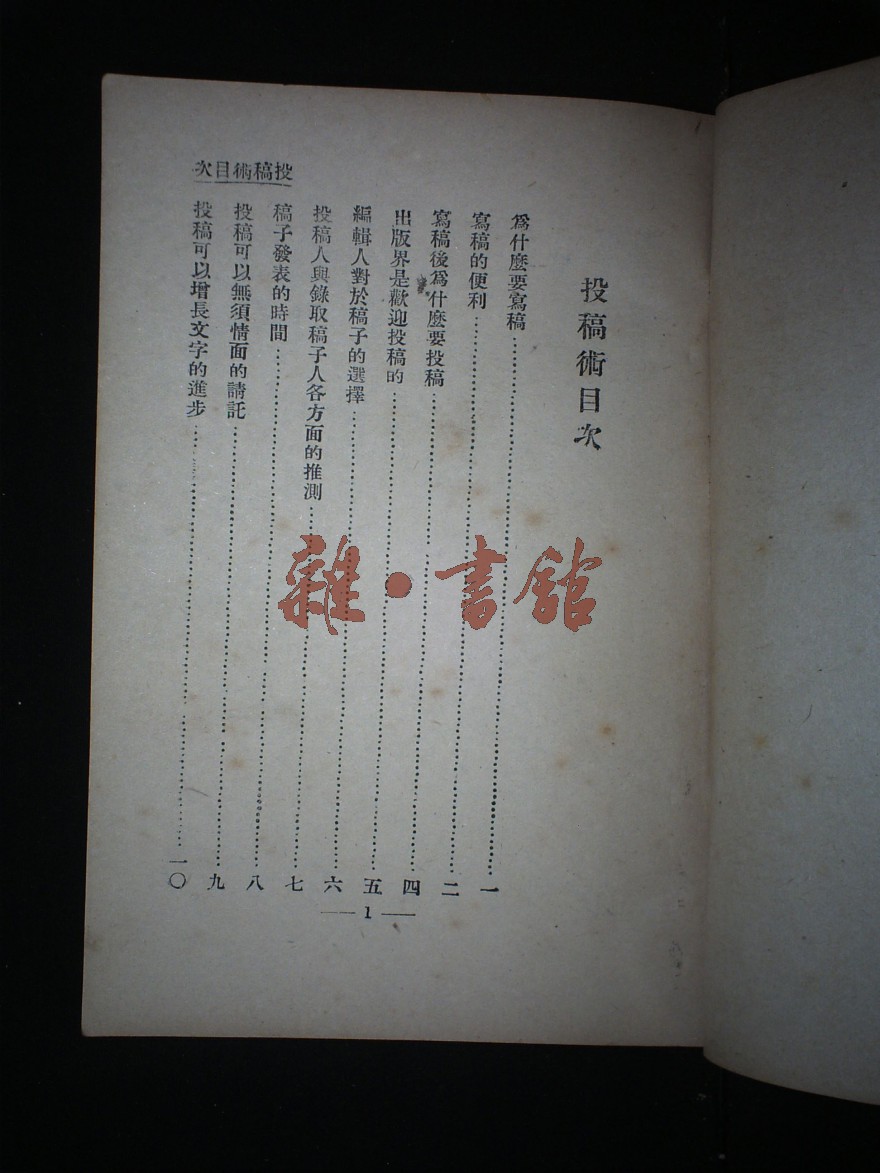 投稿術目次
投稿術目次
爲什麼要寫稿……………一
寫稿的便利……………二
寫稿後爲什麼要投稿……………四
出版界是歡迎投稿的……………五
編輯人對於稿子的選擇……………六
投稿人與錄取稿子人各方面的推測……………七
稿子發表的時間……………八
投稿可以無須情面的請託……………九
投稿可以增長文字的進步……………一〇
— 1 —
雜·書館